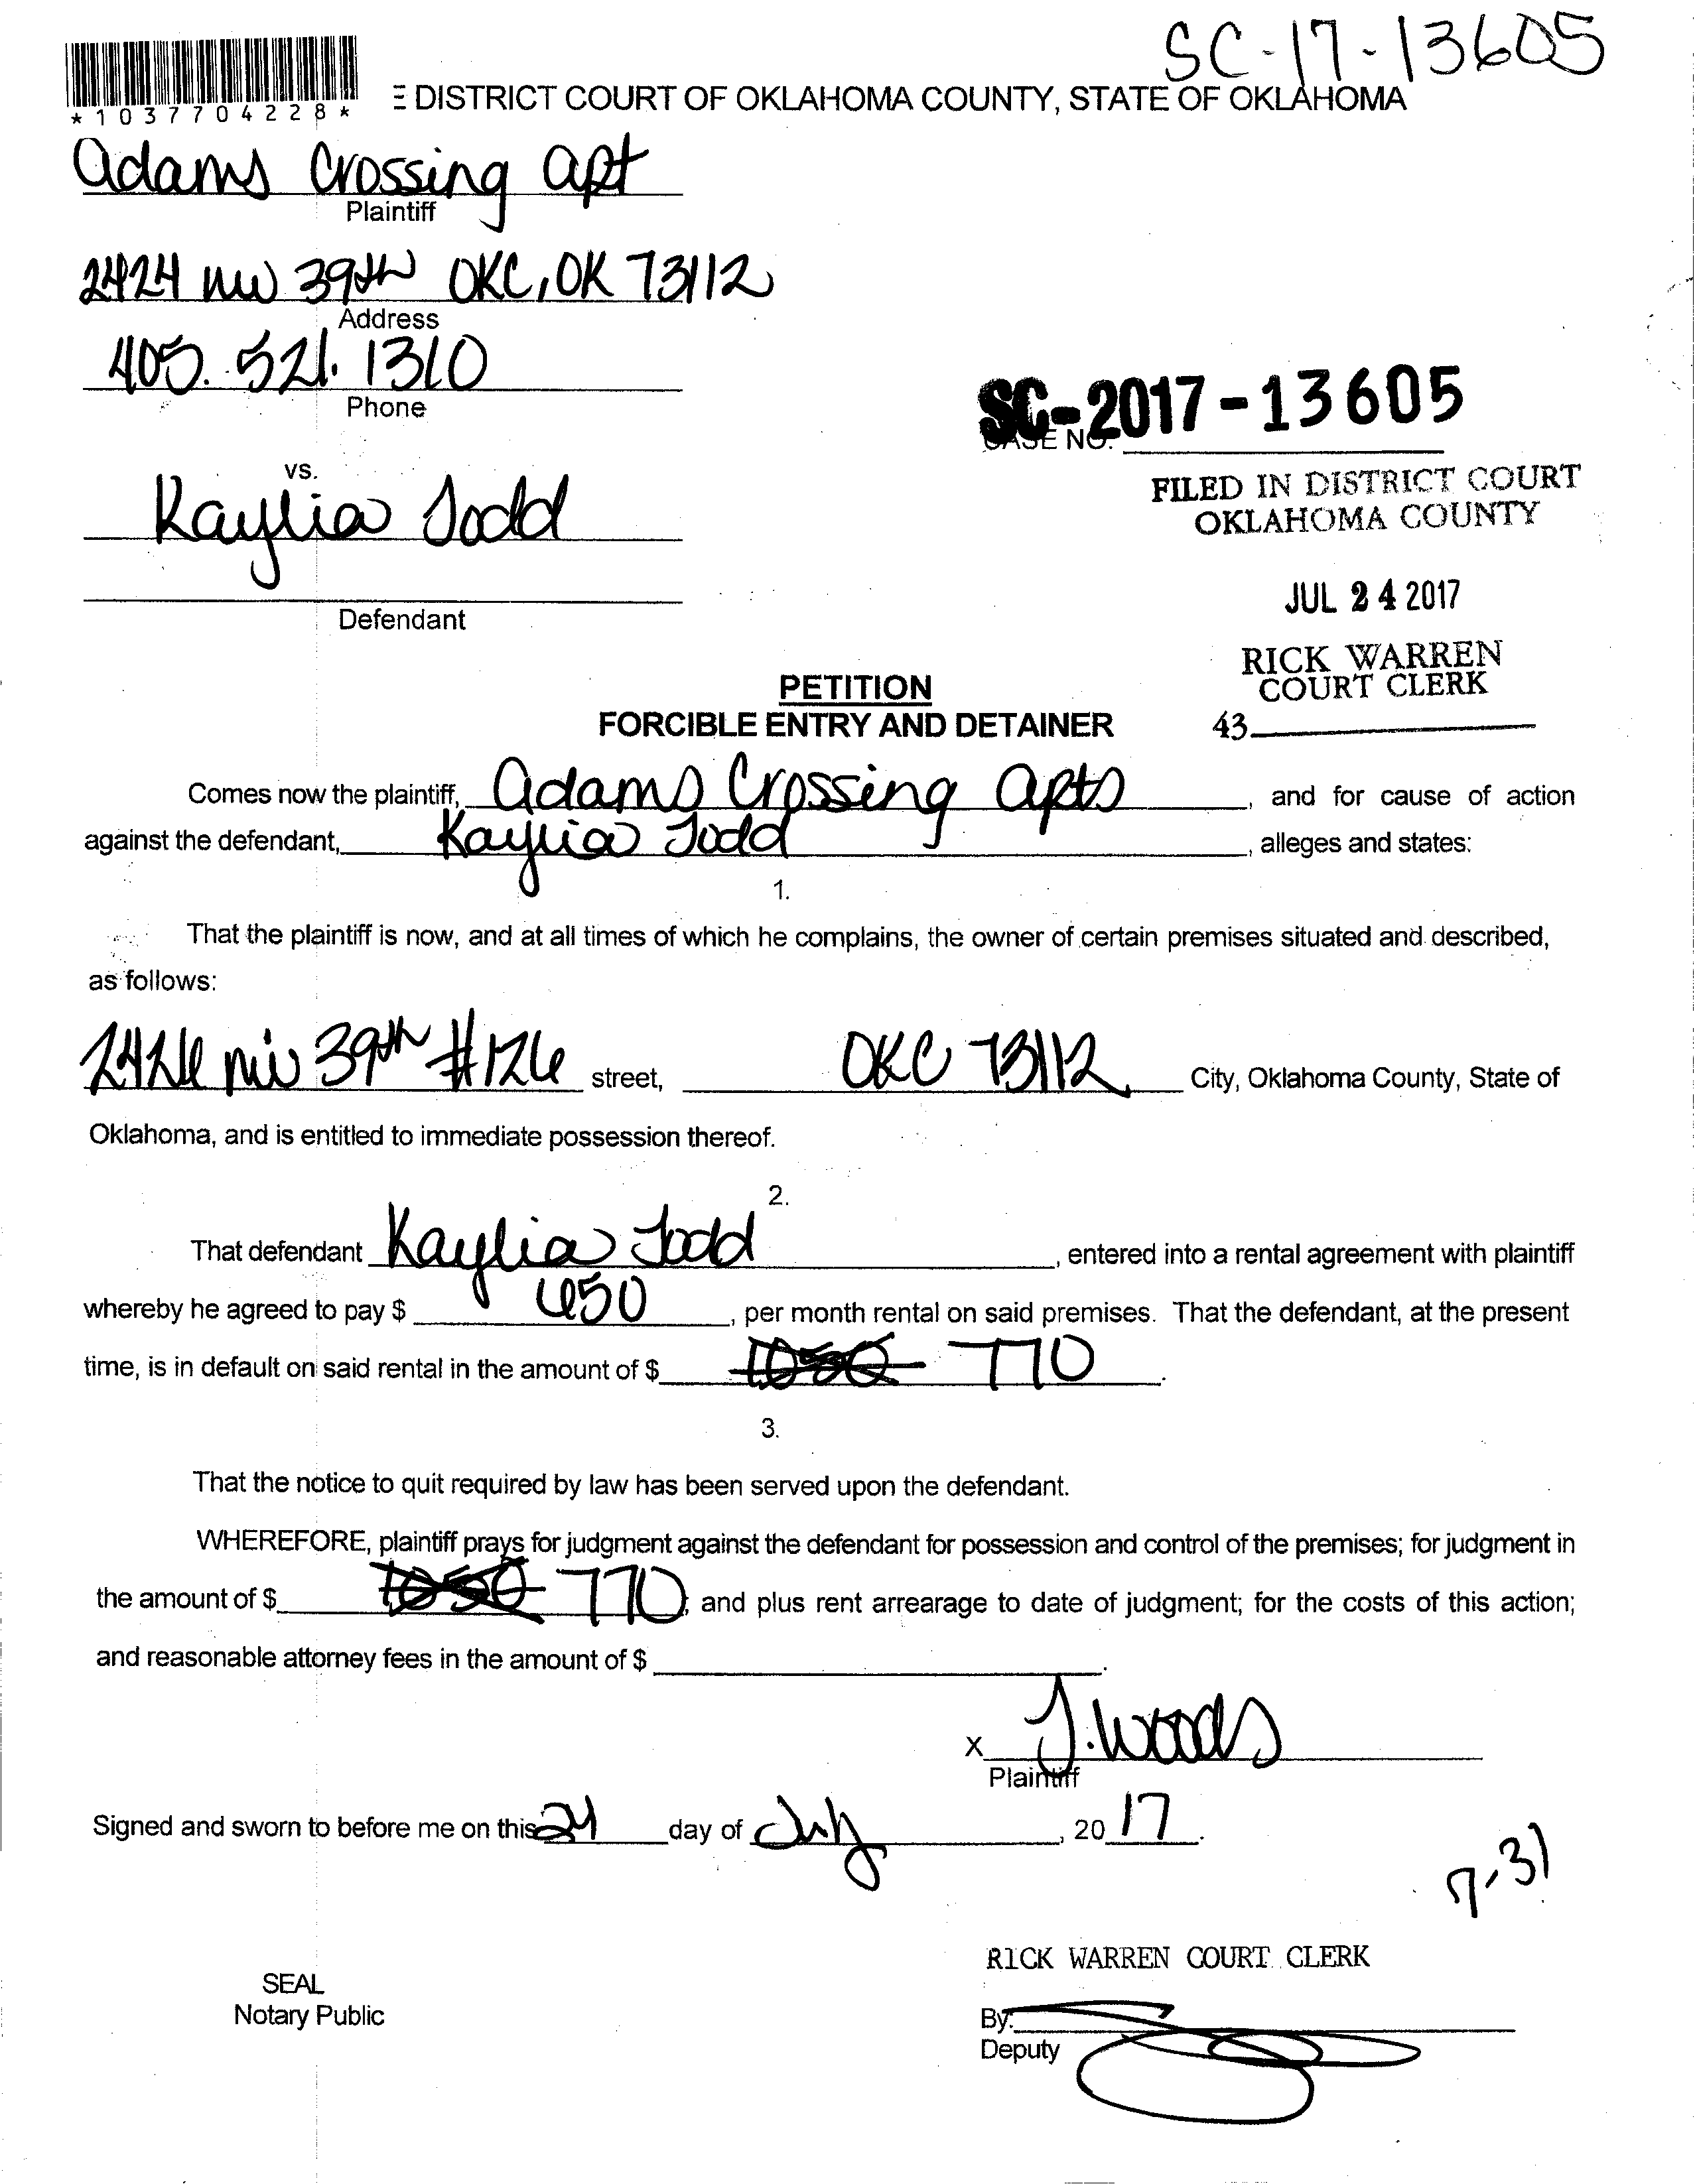 SC-17-13605
*1037704228*
E DISTRICT COURT OF OKLAHOMA COUNTY, STATE OF OKLAHOMA
Adams Crossing Apt
Plaintiff
2424 NW 39th OKC, OK 73112
Address
405.521.1310
Phone
SC-2017-13605
CASE NO.
vs.
FILED IN DISTRICT COURT
OKLAHOMA COUNTY
Kaylia Todd
JUL 24 2017
Defendant
RICK WARREN
COURT CLERK
43
PETITION
FORCIBLE ENTRY AND DETAINER
Comes now the plaintiff, Adams Crossing Apts, and for cause of action
against the defendant, Kaylia Todd, alleges and states:
1.
That the plaintiff is now, and at all times of which he complains, the owner of certain premises situated and described,
as follows:
2426 NW 39th #126 street, OKC 73112 City, Oklahoma County, State of
Oklahoma, and is entitled to immediate possession thereof.
2.
That defendant Kaylia Todd, entered into a rental agreement with plaintiff
whereby he agreed to pay $ 650, per month rental on said premises. That the defendant, at the present
time, is in default on said rental in the amount of $ 1050 770.
3.
That the notice to quit required by law has been served upon the defendant.
WHEREFORE, plaintiff prays for judgment against the defendant for possession and control of the premises; for judgment in
the amount of $ 1050 770; and plus rent arrearage to date of judgment; for the costs of this action;
and reasonable attorney fees in the amount of $ .
X J. Woods
Plaintiff
Signed and sworn to before me on this 24 day of July, 20 17.
7-31
RICK WARREN COURT CLERK
SEAL
Notary Public
By:
Deputy